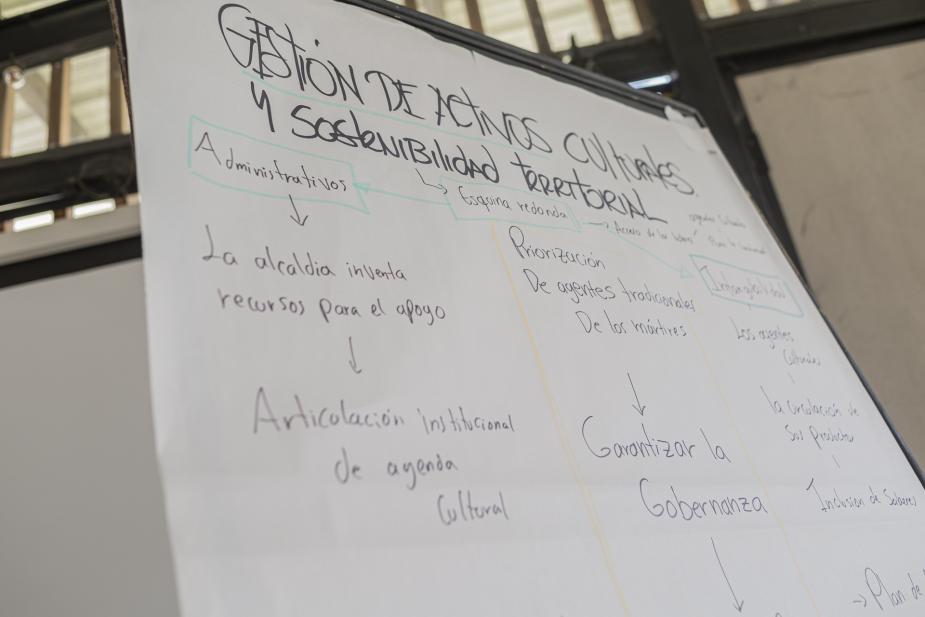 GESTIÓN DE ACTIVOS CULTURALES.
Y SOSTENIBILIDAD TERRITORIAL
Administrativos
La alcaldia inventa
recursos para el apoyo
Articolación institucional
de agenda
Cultural
Esquina redonda
Priorización
De agentes tradicionales
De los mártires
Garantizar la
Gobernanza
Los agentes
Culturales
la circulación de
sus producto
Inclusion de Saberes
Plan de